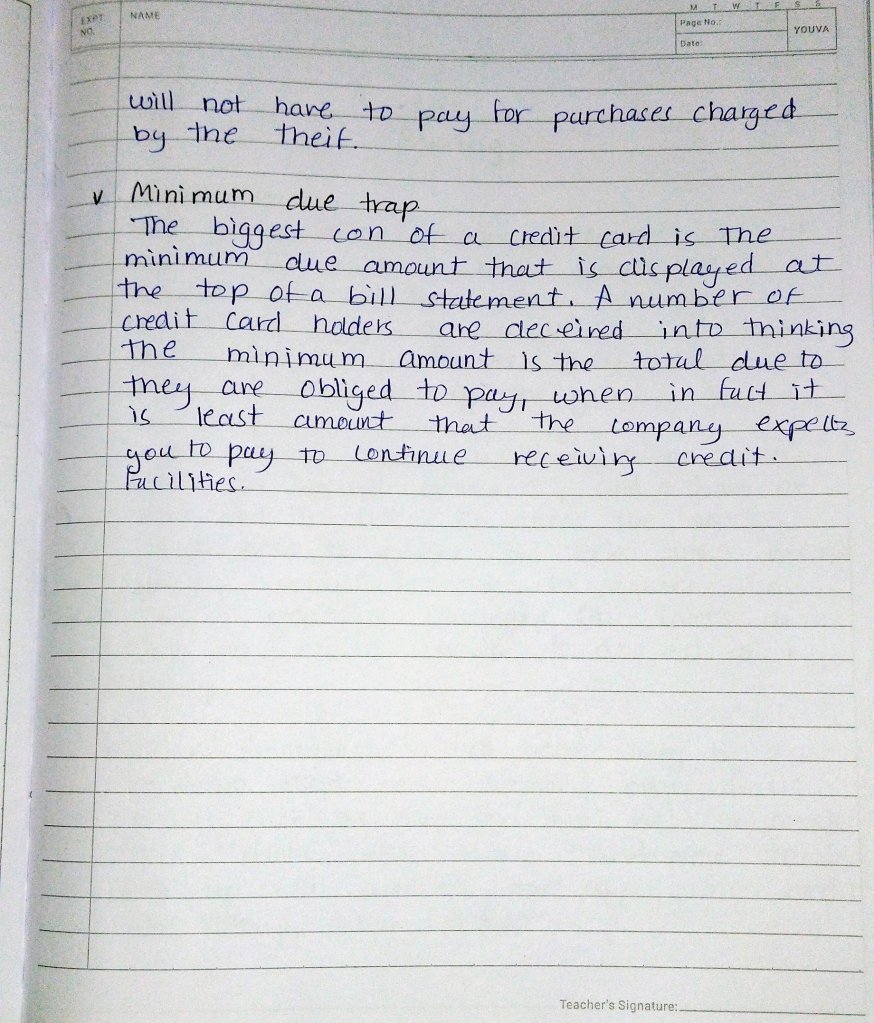 M T W T F S S
EXPT NO.
NAME
Page No.:
Date:
YOUVA
will not have to pay for purchases charged
by the theif.
v Minimum due trap
The biggest con of a credit card is The
minimum due amount that is displayed at
the top of a bill statement. A number of
credit card holders are deceived into thinking
the minimum amount is the total due to
they are obliged to pay, when in fact it
is least amount that the company expects
you to pay to continue receiving credit.
Facilities.
Teacher's Signature: